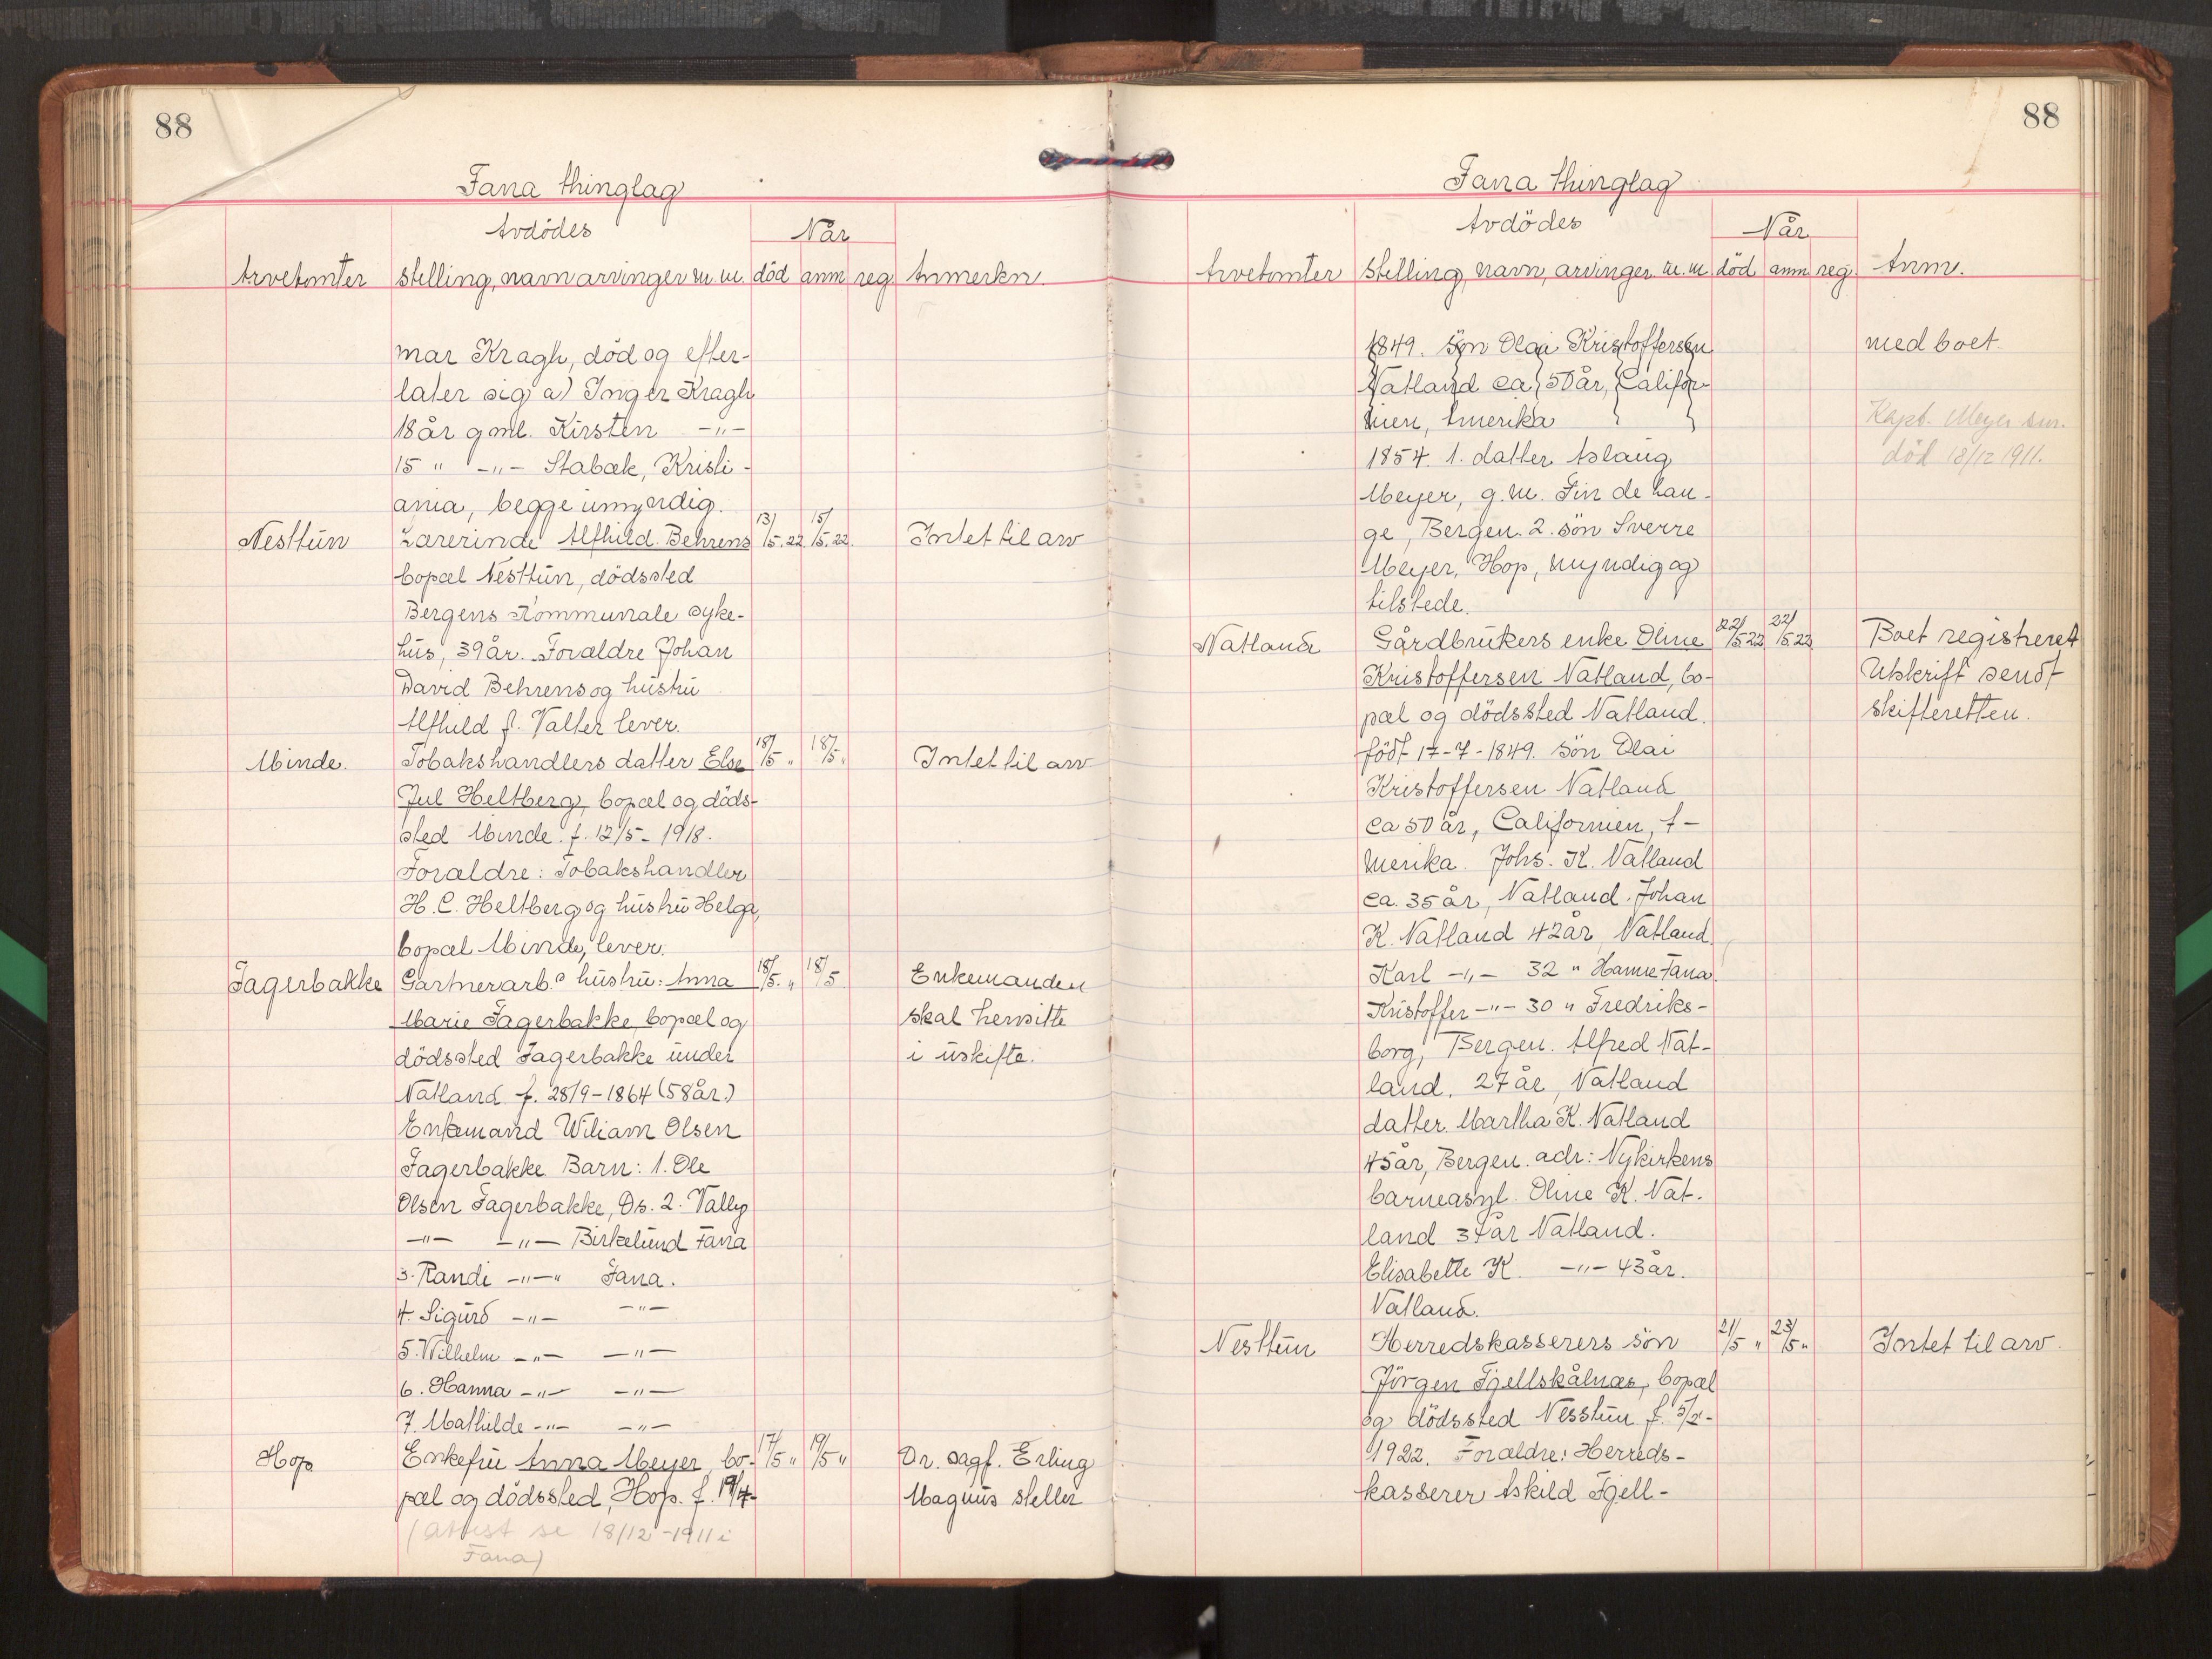 88
Fana thinglag
Avdödes
Når
Arvetomter stelling, navn arvinger m.m. död anm reg Anmerkn.
mar Kragh, död og efter-
later sig a) Inger Kragh
18 år gml. Kirsten -"-
15 " -"- Stabæk, Kristi-
ania, begge umyndig.
Nesttun Lærerinde Alfhild Behrens 13/5.22 15/5.22. Intet til arv
bopæl Nesttun, dödssted
Bergens Kommunale syke-
hus, 39 år. Forældre Johan
David Behrens og hustru
Alfhild f. Valter lever.
Minde. Tobakshandlers datter Else 18/5 " 18/5 " Intet til arv
Jul Heltberg, bopæl og döds-
sted Minde. f. 12/5 - 1918.
Forældre: Tobakshandler
H. C. Heltberg og hustru Helga,
bopæl Minde, lever.
Fagerbakke Gartnerarb.s hustru: Anna 18/5. " 18/5 Enkemanden
Marie Fagerbakke, bopæl og skal hensitte
dödssted Fagerbakke under i uskifte.
Natland f. 28/9 - 1864 (58 år.)
Enkemand Wiliam Olsen
Fagerbakke Barn: 1. Ole
Olsen Fagerbakke, Os. 2. Vally
-"- -"- Birkelund Fana
3. Randi -"-" Fana.
4. Sigurd -"- -"-
5. Wilhelm -"- -"-
6. Hanna -"- -"-
7. Mathilde -"- -"-
Hop Enkefru Anna Meyer, bo- 17/5 " 19/5 " Or. sagf. Erling
pæl og dödssted, Hop. f. 19/4- Magnus steller
(attest se 18/12 - 1911 i
Fana)
88
Fana thinglag
Avdödes
Når
Arvetomter Stelling, navn, arvinger m.m död anm reg. Anm.
1849. Sön Olai Kristoffersen med boet
Natland ca 50 år, Califor-
nien, Amerika Kapt. Meyer sen.
1854. 1. datter Aslaug död 18/12 1911.
Meyer, g.m. Fin de Lan-
ge, Bergen. 2. sön Sverre
Meyer, Hop, myndig og
tilstede.
Natland Gårdbrukers enke Oline 22/5 22 22/5 22 Boet registreret
Kristoffersen Natland, bo- Utskrift sendt
pæl og dödssted Natland. skifteretten.
födt 17-7-1849. Sön Olai
Kristoffersen Natland
ca 50 år, Californien, A-
merika. Johs. K. Natland
ca. 35 år, Natland. Johan
K. Natland 42 år Natland.
Karl -"- 32 " Hamre Fana.
Kristoffer -"- 30 " Fredriks-
borg, Bergen. Alfred Nat-
land. 27 år, Natland
datter Martha K. Natland
45 år, Bergen. adr: Nykirkens
barneasyl. Oline K. Nat-
land 37 år Natland.
Elisabette K. -"- 43 år.
Natland.
Nesttun Herredskasserers sön 21/5 " 23/5 " Intet til arv.
Jörgen Fjellskålnæs, bopæl
og dödssted Nesstun f. 5/2-
1922. Forældre: Herreds-
kasserer Askild Fjell-